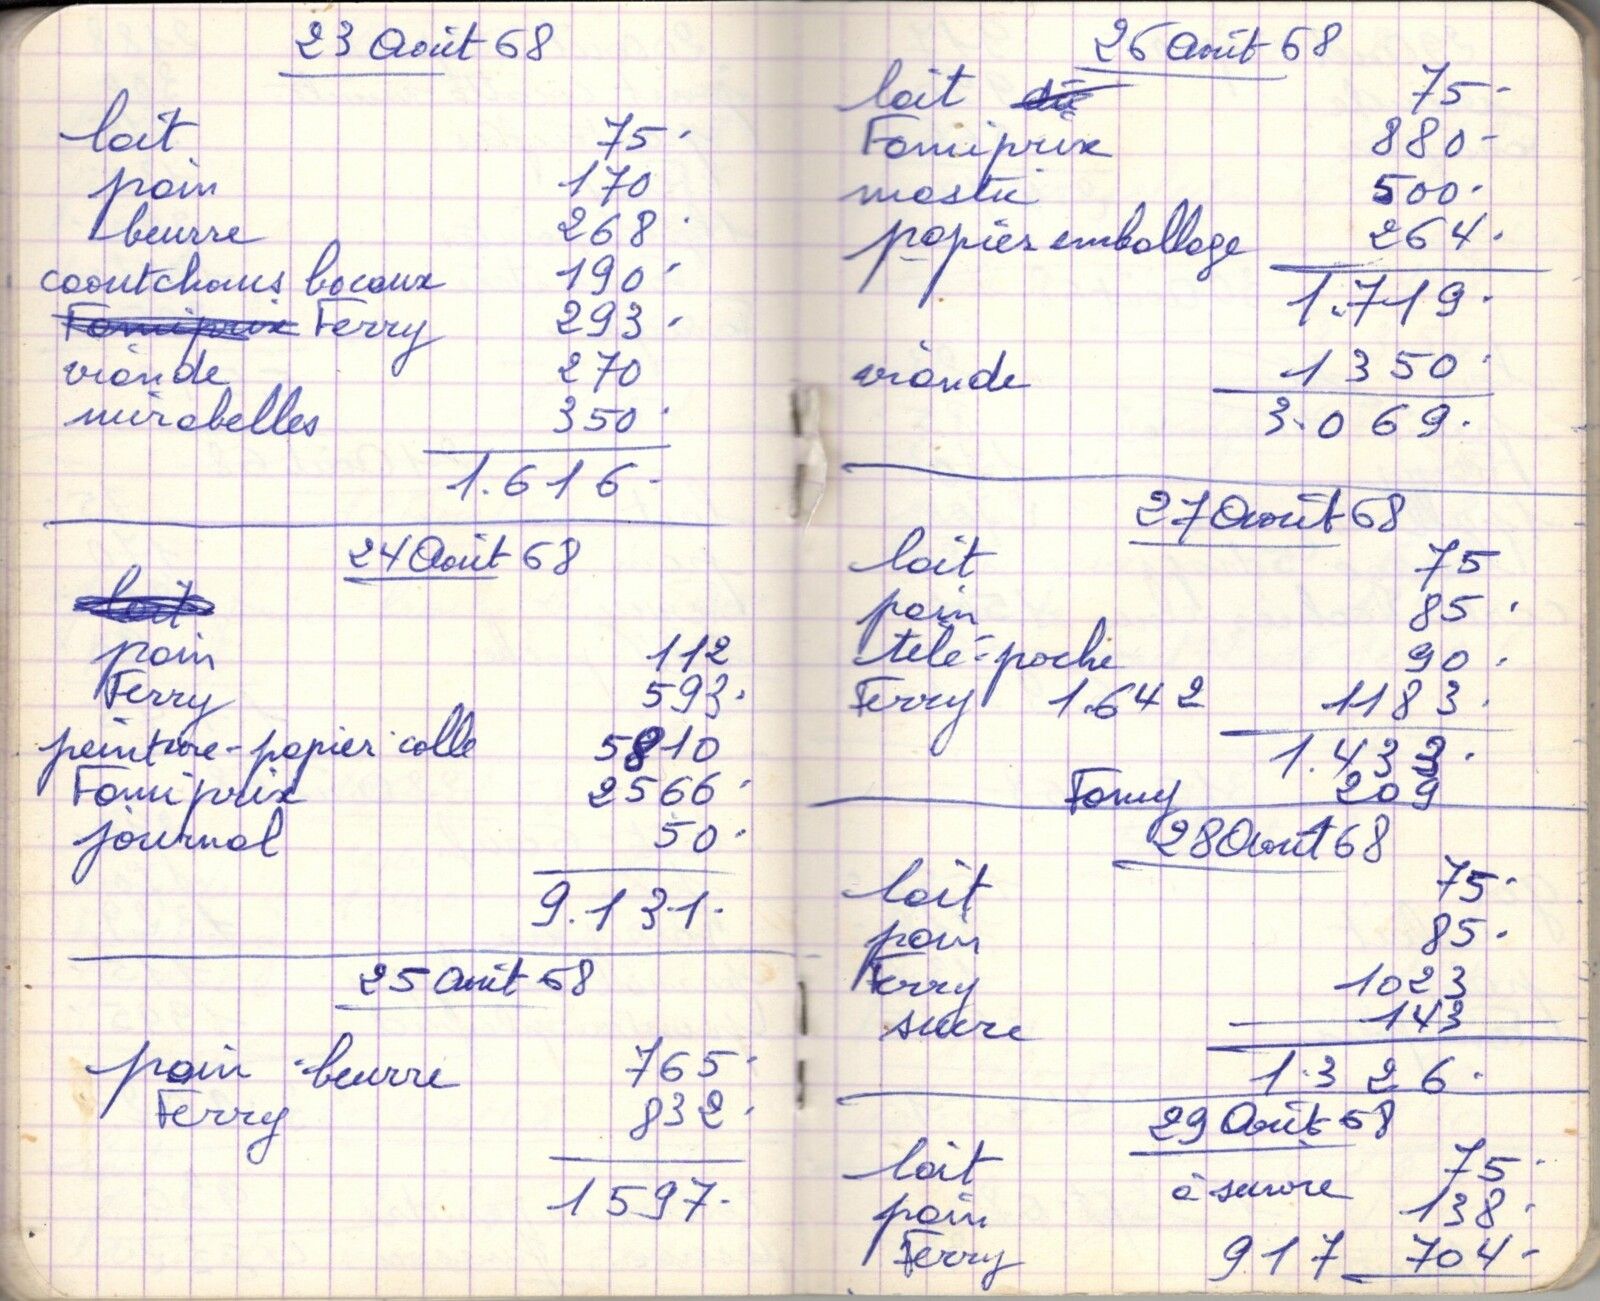 23 Août 68
lait 75.
pain 170
beurre 268.
caoutchoucs bocaux 190.
Famiprix Ferry 293.
viande 270
mirabelles 350.
1.616.
24 Août 68
lait
pain 112
Ferry 593.
peinture-papier colle 5810
Famiprix 2566.
journal 50.
9.131.
25 Août 68
pain beurre 765.
Ferry 832.
1597.
26 Août 68
lait 75-
Famiprix 880-
mastic 500.
papier emballage 264.
1.719.
viande 1350.
3.069.
27 Août 68
lait 75
pain 85.
télé-poche 90.
Ferry 1.642 1183.
1.433.
Famy 209
28 Août 68
lait 75.
pain 85.
Ferry 1023
sucre 143
1.326.
29 Août 68
lait 75.
à suivre
pain 138.
Ferry 917 704-